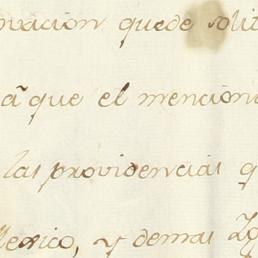 ovacion quede solit
aª que el mencion
las providencias q
Mexico, y demas Yg